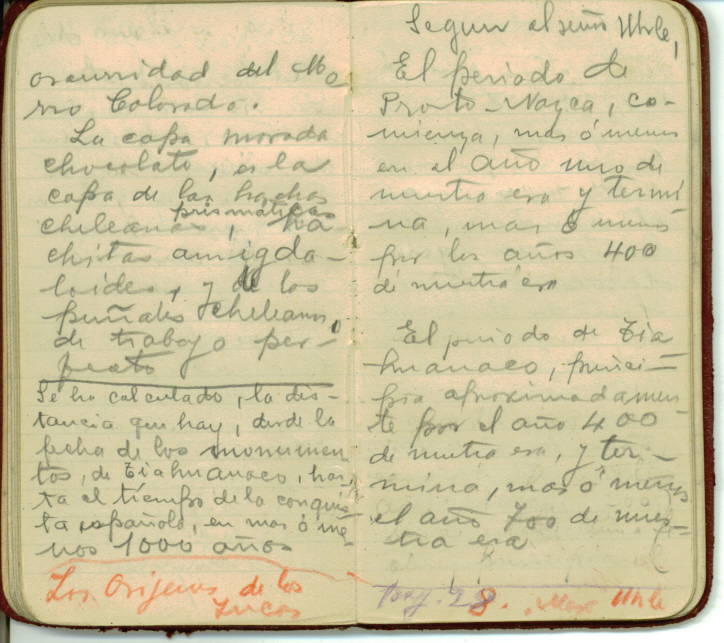 oscuridad del Mo
rro Colorado.
La capa morada
chocolate, es la
capa de las hachas
chileanas prismáticas, ha
chitas amigda-
loides, y de los
puñales chileanos,
de trabajo per-
fecto
Se ha calculado, la dis-
tancia que hay, desde la
fecha de los monumen
tos, de Tiahuanaco, has
ta el tiempo de la conquis
ta española, en mas ó me-
nos 1000 años
Los Orijenes de los
Incas
Segun el señor Uhle,
El periodo de
Proto-Nazca, co-
mienza, mas ó menos
en el año uno de
nuestra era y termi
na, mas ó menos
por los años 400
de nuestra era
El periodo de Tia
huanaco, princi-
pia aproximadamen-
te por el año 400
de nuestra era, y ter-
mina, mas ó menos
el año 700 de nues-
tra era
pag. 28. Max Uhle